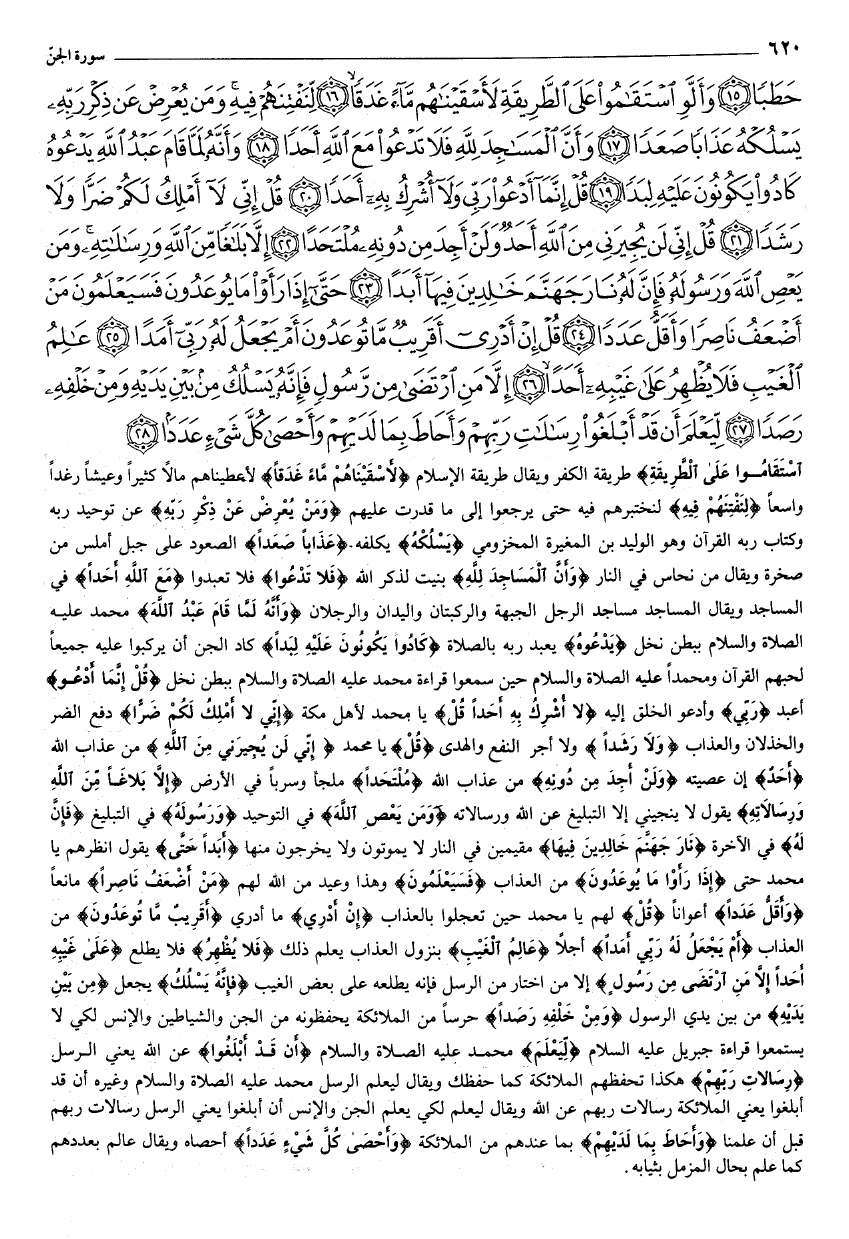 ٦٢٠ سورة الجنّ
حَطَبًا ﴿١٥﴾ وَأَلَّوِ ٱسْتَقَٰمُوا۟ عَلَى ٱلطَّرِيقَةِ لَأَسْقَيْنَٰهُم مَّآءً غَدَقًا ﴿١٦﴾ لِّنَفْتِنَهُمْ فِيهِ ۚ وَمَن يُعْرِضْ عَن ذِكْرِ رَبِّهِۦ
يَسْلُكْهُ عَذَابًا صَعَدًا ﴿١٧﴾ وَأَنَّ ٱلْمَسَٰجِدَ لِلَّهِ فَلَا تَدْعُوا۟ مَعَ ٱللَّهِ أَحَدًا ﴿١٨﴾ وَأَنَّهُۥ لَمَّا قَامَ عَبْدُ ٱللَّهِ يَدْعُوهُ
كَادُوا۟ يَكُونُونَ عَلَيْهِ لِبَدًا ﴿١٩﴾ قُلْ إِنَّمَآ أَدْعُوا۟ رَبِّى وَلَآ أُشْرِكُ بِهِۦٓ أَحَدًا ﴿٢٠﴾ قُلْ إِنِّى لَآ أَمْلِكُ لَكُمْ ضَرًّا وَلَا
رَشَدًا ﴿٢١﴾ قُلْ إِنِّى لَن يُجِيرَنِى مِنَ ٱللَّهِ أَحَدٌ وَلَنْ أَجِدَ مِن دُونِهِۦ مُلْتَحَدًا ﴿٢٢﴾ إِلَّا بَلَٰغًا مِّنَ ٱللَّهِ وَرِسَٰلَٰتِهِۦ ۚ وَمَن
يَعْصِ ٱللَّهَ وَرَسُولَهُۥ فَإِنَّ لَهُۥ نَارَ جَهَنَّمَ خَٰلِدِينَ فِيهَآ أَبَدًا ﴿٢٣﴾ حَتَّىٰٓ إِذَا رَأَوْا۟ مَا يُوعَدُونَ فَسَيَعْلَمُونَ مَنْ
أَضْعَفُ نَاصِرًا وَأَقَلُّ عَدَدًا ﴿٢٤﴾ قُلْ إِنْ أَدْرِىٓ أَقَرِيبٌ مَّا تُوعَدُونَ أَمْ يَجْعَلُ لَهُۥ رَبِّىٓ أَمَدًا ﴿٢٥﴾ عَٰلِمُ
ٱلْغَيْبِ فَلَا يُظْهِرُ عَلَىٰ غَيْبِهِۦٓ أَحَدًا ﴿٢٦﴾ إِلَّا مَنِ ٱرْتَضَىٰ مِن رَّسُولٍ فَإِنَّهُۥ يَسْلُكُ مِنۢ بَيْنِ يَدَيْهِ وَمِنْ خَلْفِهِۦ
رَصَدًا ﴿٢٧﴾ لِّيَعْلَمَ أَن قَدْ أَبْلَغُوا۟ رِسَٰلَٰتِ رَبِّهِمْ وَأَحَاطَ بِمَا لَدَيْهِمْ وَأَحْصَىٰ كُلَّ شَىْءٍ عَدَدًۢا ﴿٢٨﴾
ٱسْتَقَامُـوا عَلَىٰ ٱلْطَّرِيقَةِ﴾ طريقة الكفر ويقال طريقة الإسلام ﴿لَأَسْقَيْنَاهُمْ مَّاءً غَدَقاً﴾ لأعطيناهم مالاً كثيراً وعيشاً رغداً
واسعاً ﴿لِنَفْتِنَهُمْ فِيهِ﴾ لنختبرهم فيه حتى يرجعوا إلى ما قدرت عليهم ﴿وَمَنْ يُعْرِضْ عَنْ ذِكْرِ رَبِّهِ﴾ عن توحيد ربه
وكتاب ربه القرآن وهو الوليد بن المغيرة المخزومي ﴿يَسْلُكْهُ﴾ يكلفه. ﴿عَذَاباً صَعَداً﴾ الصعود على جبل أملس من
صخرة ويقال من نحاس في النار ﴿وَأَنَّ ٱلْمَسَاجِدَ لِلَّهِ﴾ بنيت لذكر الله ﴿فَلَا تَدْعُوا﴾ فلا تعبدوا ﴿مَعَ ٱللَّهِ أَحَداً﴾ في
المساجد ويقال المساجد مساجد الرجل الجبهة والركبتان واليدان والرجلان ﴿وَأَنَّهُ لَمَّا قَامَ عَبْدُ ٱللَّهِ﴾ محمد عليه
الصلاة والسلام ببطن نخل ﴿يَدْعُوهُ﴾ يعبد ربه بالصلاة ﴿كَادُوا يَكُونُونَ عَلَيْهِ لِبَداً﴾ كاد الجن أن يركبوا عليه جميعاً
لحبهم القرآن ومحمداً عليه الصلاة والسلام حين سمعوا قراءة محمد عليه الصلاة والسلام ببطن نخل ﴿قُلْ إِنَّمَا أَدْعُـو﴾
أعبد ﴿رَبِّي﴾ وأدعو الخلق إليه ﴿لَا أُشْرِكُ بِهِ أَحَداً قُلْ﴾ يا محمد لأهل مكة ﴿إِنِّي لَا أَمْلِكُ لَكُمْ ضَرًّا﴾ دفع الضر
والخذلان والعذاب ﴿وَلَا رَشَداً﴾ ولا أجر النفع والهدى ﴿قُلْ﴾ يا محمد ﴿إِنِّي لَن يُجِيرَنِي مِنَ ٱللَّهِ﴾ من عذاب الله
﴿أَحَدٌ﴾ إن عصيته ﴿وَلَنْ أَجِدَ مِن دُونِهِ﴾ من عذاب الله ﴿مُلْتَحَداً﴾ ملجأ وسرباً في الأرض ﴿إِلَّا بَلَاغَـاً مِّنَ ٱللَّهِ
وَرِسَالَاتِهِ﴾ يقول لا ينجيني إلا التبليغ عن الله ورسالاته ﴿وَمَن يَعْصِ ٱللَّهَ﴾ في التوحيد ﴿وَرَسُولَهُ﴾ في التبليغ ﴿فَإِنَّ
لَهُ﴾ في الآخرة ﴿نَارَ جَهَنَّمَ خَالِدِينَ فِيهَا﴾ مقيمين في النار لا يموتون ولا يخرجون منها ﴿أَبَداً حَتَّى﴾ يقول انظرهم يا
محمد حتى ﴿إِذَا رَأَوْا مَا يُوعَدُونَ﴾ من العذاب ﴿فَسَيَعْلَمُونَ﴾ وهذا وعيد من الله لهم ﴿مَنْ أَضْعَفُ نَاصِراً﴾ مانعاً
﴿وَأَقَلُّ عَدَداً﴾ أعواناً ﴿قُلْ﴾ لهم يا محمد حين تعجلوا بالعذاب ﴿إِنْ أَدْرِي﴾ ما أدري ﴿أَقَرِيبٌ مَّا تُوعَدُونَ﴾ من
العذاب ﴿أَمْ يَجْعَلُ لَهُ رَبِّي أَمَداً﴾ أجلاً ﴿عَالِمُ ٱلْغَيْبِ﴾ بنزول العذاب يعلم ذلك ﴿فَلَا يُظْهِرُ﴾ فلا يطلع ﴿عَلَى غَيْبِهِ
أَحَداً إِلَّا مَنِ ٱرْتَضَى مِن رَسُولٍ﴾ إلا من اختار من الرسل فإنه يطلعه على بعض الغيب ﴿فَإِنَّهُ يَسْلُكُ﴾ يجعل ﴿مِن بَيْنِ
يَدَيْهِ﴾ من بين يدي الرسول ﴿وَمِنْ خَلْفِهِ رَصَداً﴾ حرساً من الملائكة يحفظونه من الجن والشياطين والإنس لكي لا
يستمعوا قراءة جبريل عليه السلام ﴿لِّيَعْلَمَ﴾ محمد عليه الصلاة والسلام ﴿أَن قَـدْ أَبْلَغُوا﴾ عن الله يعني الرسل
﴿رِسَالَاتِ رَبِّهِمْ﴾ هكذا تحفظهم الملائكة كما حفظك ويقال ليعلم الرسل محمد عليه الصلاة والسلام وغيره أن قد
أبلغوا يعني الملائكة رسالات ربهم عن الله ويقال ليعلم لكي يعلم الجن والإنس أن أبلغوا يعني الرسل رسالات ربهم
قبل أن علمنا ﴿وَأَحَاطَ بِمَا لَدَيْهِمْ﴾ بما عندهم من الملائكة ﴿وَأَحْصَىٰ كُلَّ شَيْءٍ عَدَداً﴾ أحصاه ويقال عالم بعددهم
كما علم بحال المزمل بثيابه.